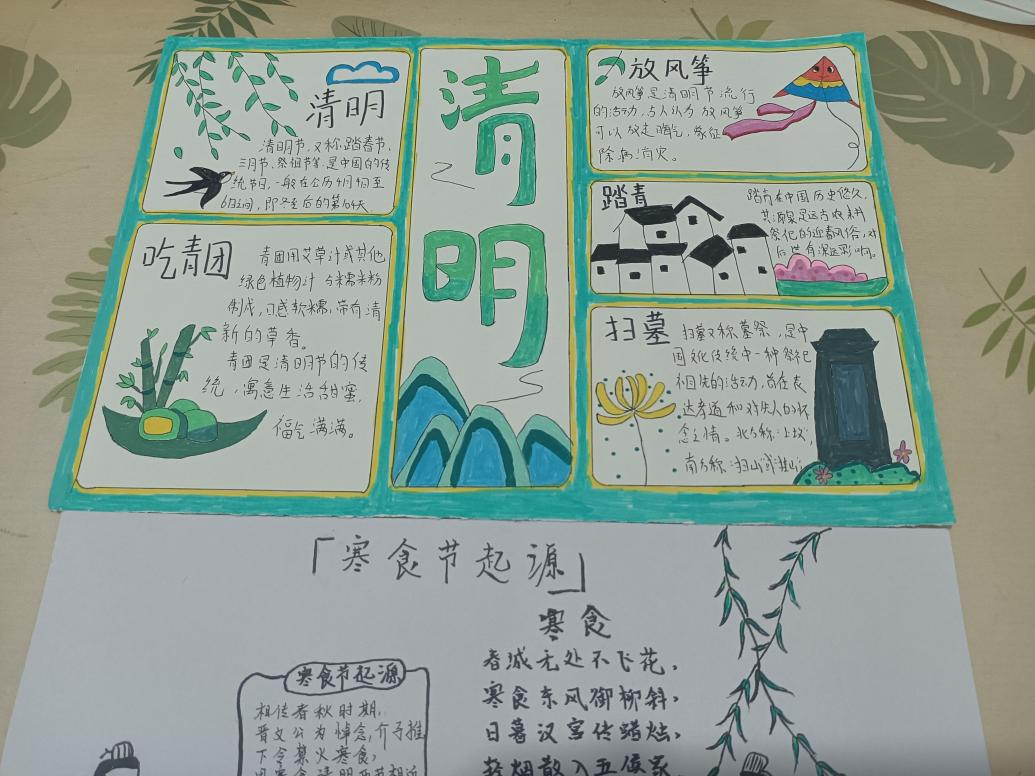 清明
清明节,又称踏春节、
三月节、祭祖节等,是中国的传
统节日,一般在公历4月4日至
6日之间,即冬至后的第104天
吃青团
青团用艾草汁或其他
绿色植物汁与糯米粉
制成,口感软糯,带有清
新的草香。
青团是清明节的传
统,寓意生活甜蜜,
福气满满。
清
明
放风筝
放风筝是清明节流行
的活动,古人认为放风筝
可以放走晦气,象征
除病消灾。
踏青
踏青在中国历史悠久,
其源泉是远古农耕
祭祀的迎春风俗,对
后世有深远影响。
扫墓
扫墓又称墓祭,是中
国文化传统中一种祭祀
祖先的活动,旨在表
达孝道和对先人的怀
念之情。北方称“上坟”,
南方称“扫山”或“拜山”
「寒食节起源」
寒食
春城无处不飞花,
寒食东风御柳斜,
日暮汉宫传蜡烛,
轻烟散入五侯家
寒食节起源
相传春秋时期,
晋文公为悼念介子推
下令禁火寒食,